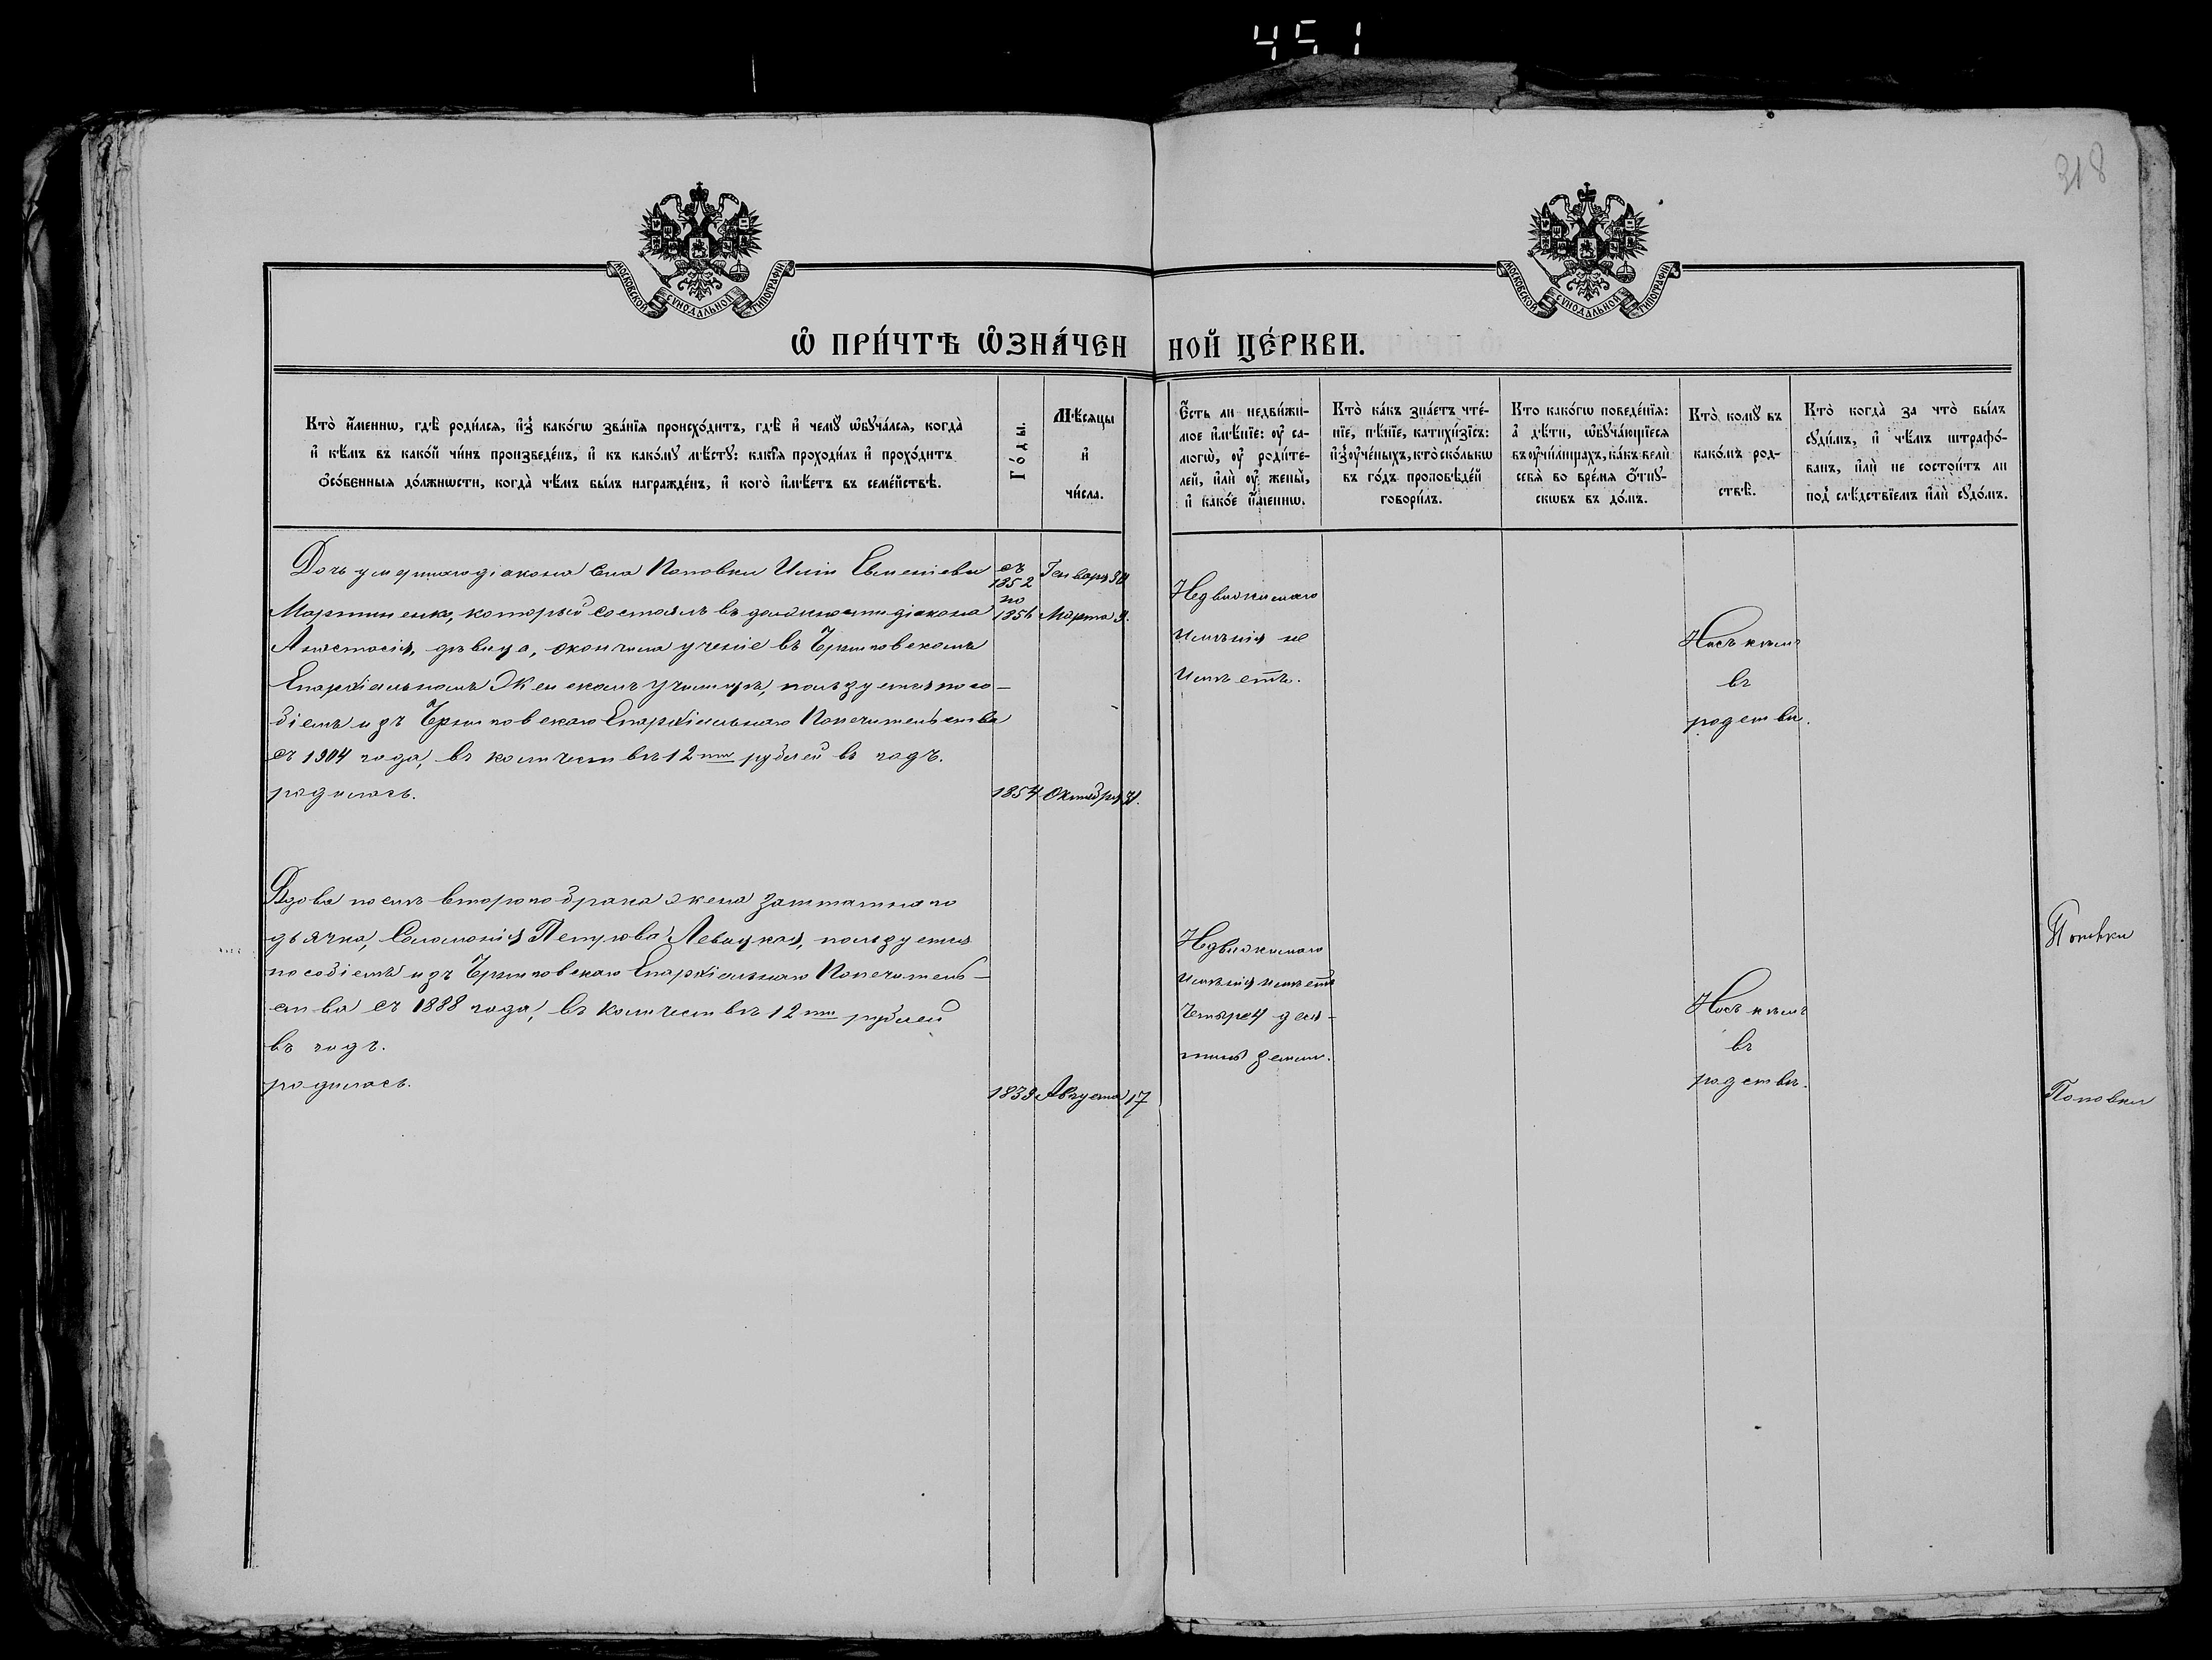 451
318
МОСКОВСКОЙ СѴНОДАЛЬНОЙ ТИПОГРАФІИ
МОСКОВСКОЙ СѴНОДАЛЬНОЙ ТИПОГРАФІИ
Ѡ ПРИ́ЧТѢ ѠЗНА́ЧЕННОЙ ЦЕ́РКВИ.
Кто̀ и҆́менно, гдѣ̀ роди́лся, и҆з̾ како́гѡ зва́нїѧ происхо́дитъ, гдѣ̀ и҆ чемꙋ̀ ѡ҆бꙋча́лся, когда̀
и҆ кѣ́мъ въ како́й чи́нъ произведе́нъ, и҆ къ како́мꙋ мѣ́стꙋ: какі̑ѧ проходи́лъ и҆ прохо́дитъ
ѻ҆со́бенныѧ до́лжности, когда̀ чѣ́мъ бы́лъ награжде́нъ, и҆ кого̀ и҆мѣ́етъ въ семе́йствѣ.
Го́ды.
Мѣ́сѧцы
и҆
чи́сла.
Е҆́сть ли недви́жи-
мое и҆мѣ́нїе: ᲂу҆ са-
могѡ̀, ᲂу҆ роди́те-
лей, и҆лѝ ᲂу҆ жены̀,
и҆ како́е и҆́менно.
Кто̀ ка́къ зна́етъ чте́-
нїе, пѣ́нїе, катихи́зїсъ:
и҆з̾ ᲂу҆че́ныхъ, кто̀ ско́лькѡ
въ го́дъ проповѣ́дей
говори́лъ.
Кто како́гѡ поведе́нїѧ:
а҆ дѣ́ти, ѡ҆бꙋча́ющїесѧ
въ ᲂу҆чи́лищахъ, ка́къ велѝ
себѧ̀ во вре́мѧ ѿпꙋ-
сковъ въ до́мъ.
Кто̀ комꙋ̀ въ
како́мъ род-
ствѣ̀.
Кто̀ когда̀ за что̀ бы́лъ
сꙋди́мъ, и҆ чѣ́мъ штрафо́-
ванъ, и҆лѝ не состои́тъ ли
под̾ слѣ́дствїемъ и҆лѝ сꙋдо́мъ.
Дочь умершаго діакона села Поповки Иліи Евменіева съ 1852 Генваря
Мартиненка, который состоялъ въ должности діакона по 1856 Марта 9.
Анастасія, дѣвица, окончила ученіе въ Черниговскомъ
Епархіальномъ Женскомъ училищѣ, пользуется посо-
біемъ изъ Черниговскаго Епархіальнаго Попечительства
съ 1904 года, въ количествѣ 12ти рублей въ годъ.
родилась. 1854 Октября
Недвижимаго
имѣнія не
имѣетъ.
Ни съ кѣмъ
въ
родствѣ.
Вдова послѣ второго брака жена заштатнаго
дьячка, Соломонія Петрова Левицкая, пользуется
пособіемъ изъ Черниговскаго Епархіальнаго Попечитель-
ства съ 1888 года, въ количествѣ 12ти рублей
въ годъ.
родилась. 1839 Августа 17
Недвижимаго
имѣнія имѣетъ
четыре деся-
тины земли.
Ни съ кѣмъ
въ
родствѣ.
Поповки
Поповки